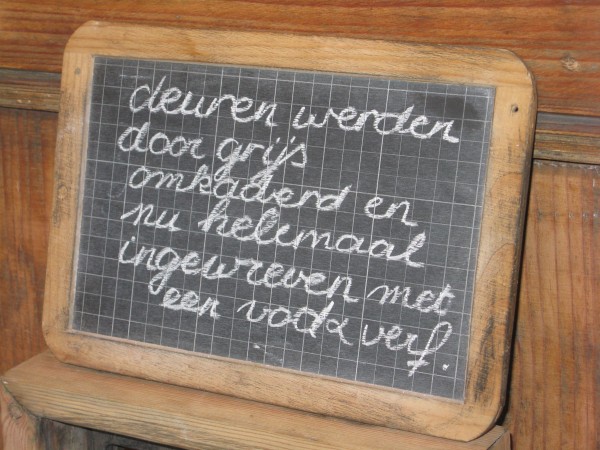 deuren werden
door grijs
omkaderd en
nu helemaal
ingewreven met
een vod & verf.